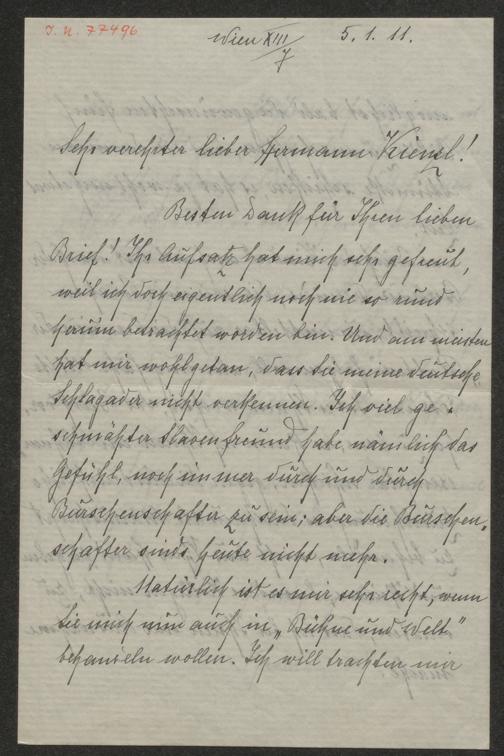 I. N. 77496
Wien XIII/7 5. 1. 11.
Sehr verehrter lieber Hermann Kienzl!
Besten Dank für Ihren lieben
Brief! Ihr Aufsatz hat mich sehr gefreut,
weil ich doch eigentlich noch nie so rund
herum betrachtet worden bin. Und am meisten
hat mir wohlgetan, dass Sie meine deutsche
Schlagader nicht verkennen. Ich viel ge-
schmähter Slavenfreund habe nämlich das
Gefühl, noch immer durch und durch
Burschenschafter zu sein; aber die Burschen-
schafter sinds heute nicht mehr.
Natürlich ist es mir sehr recht, wenn
Sie mich nun auch in „Bühne und Welt"
behandeln wollen. Ich will trachten mir